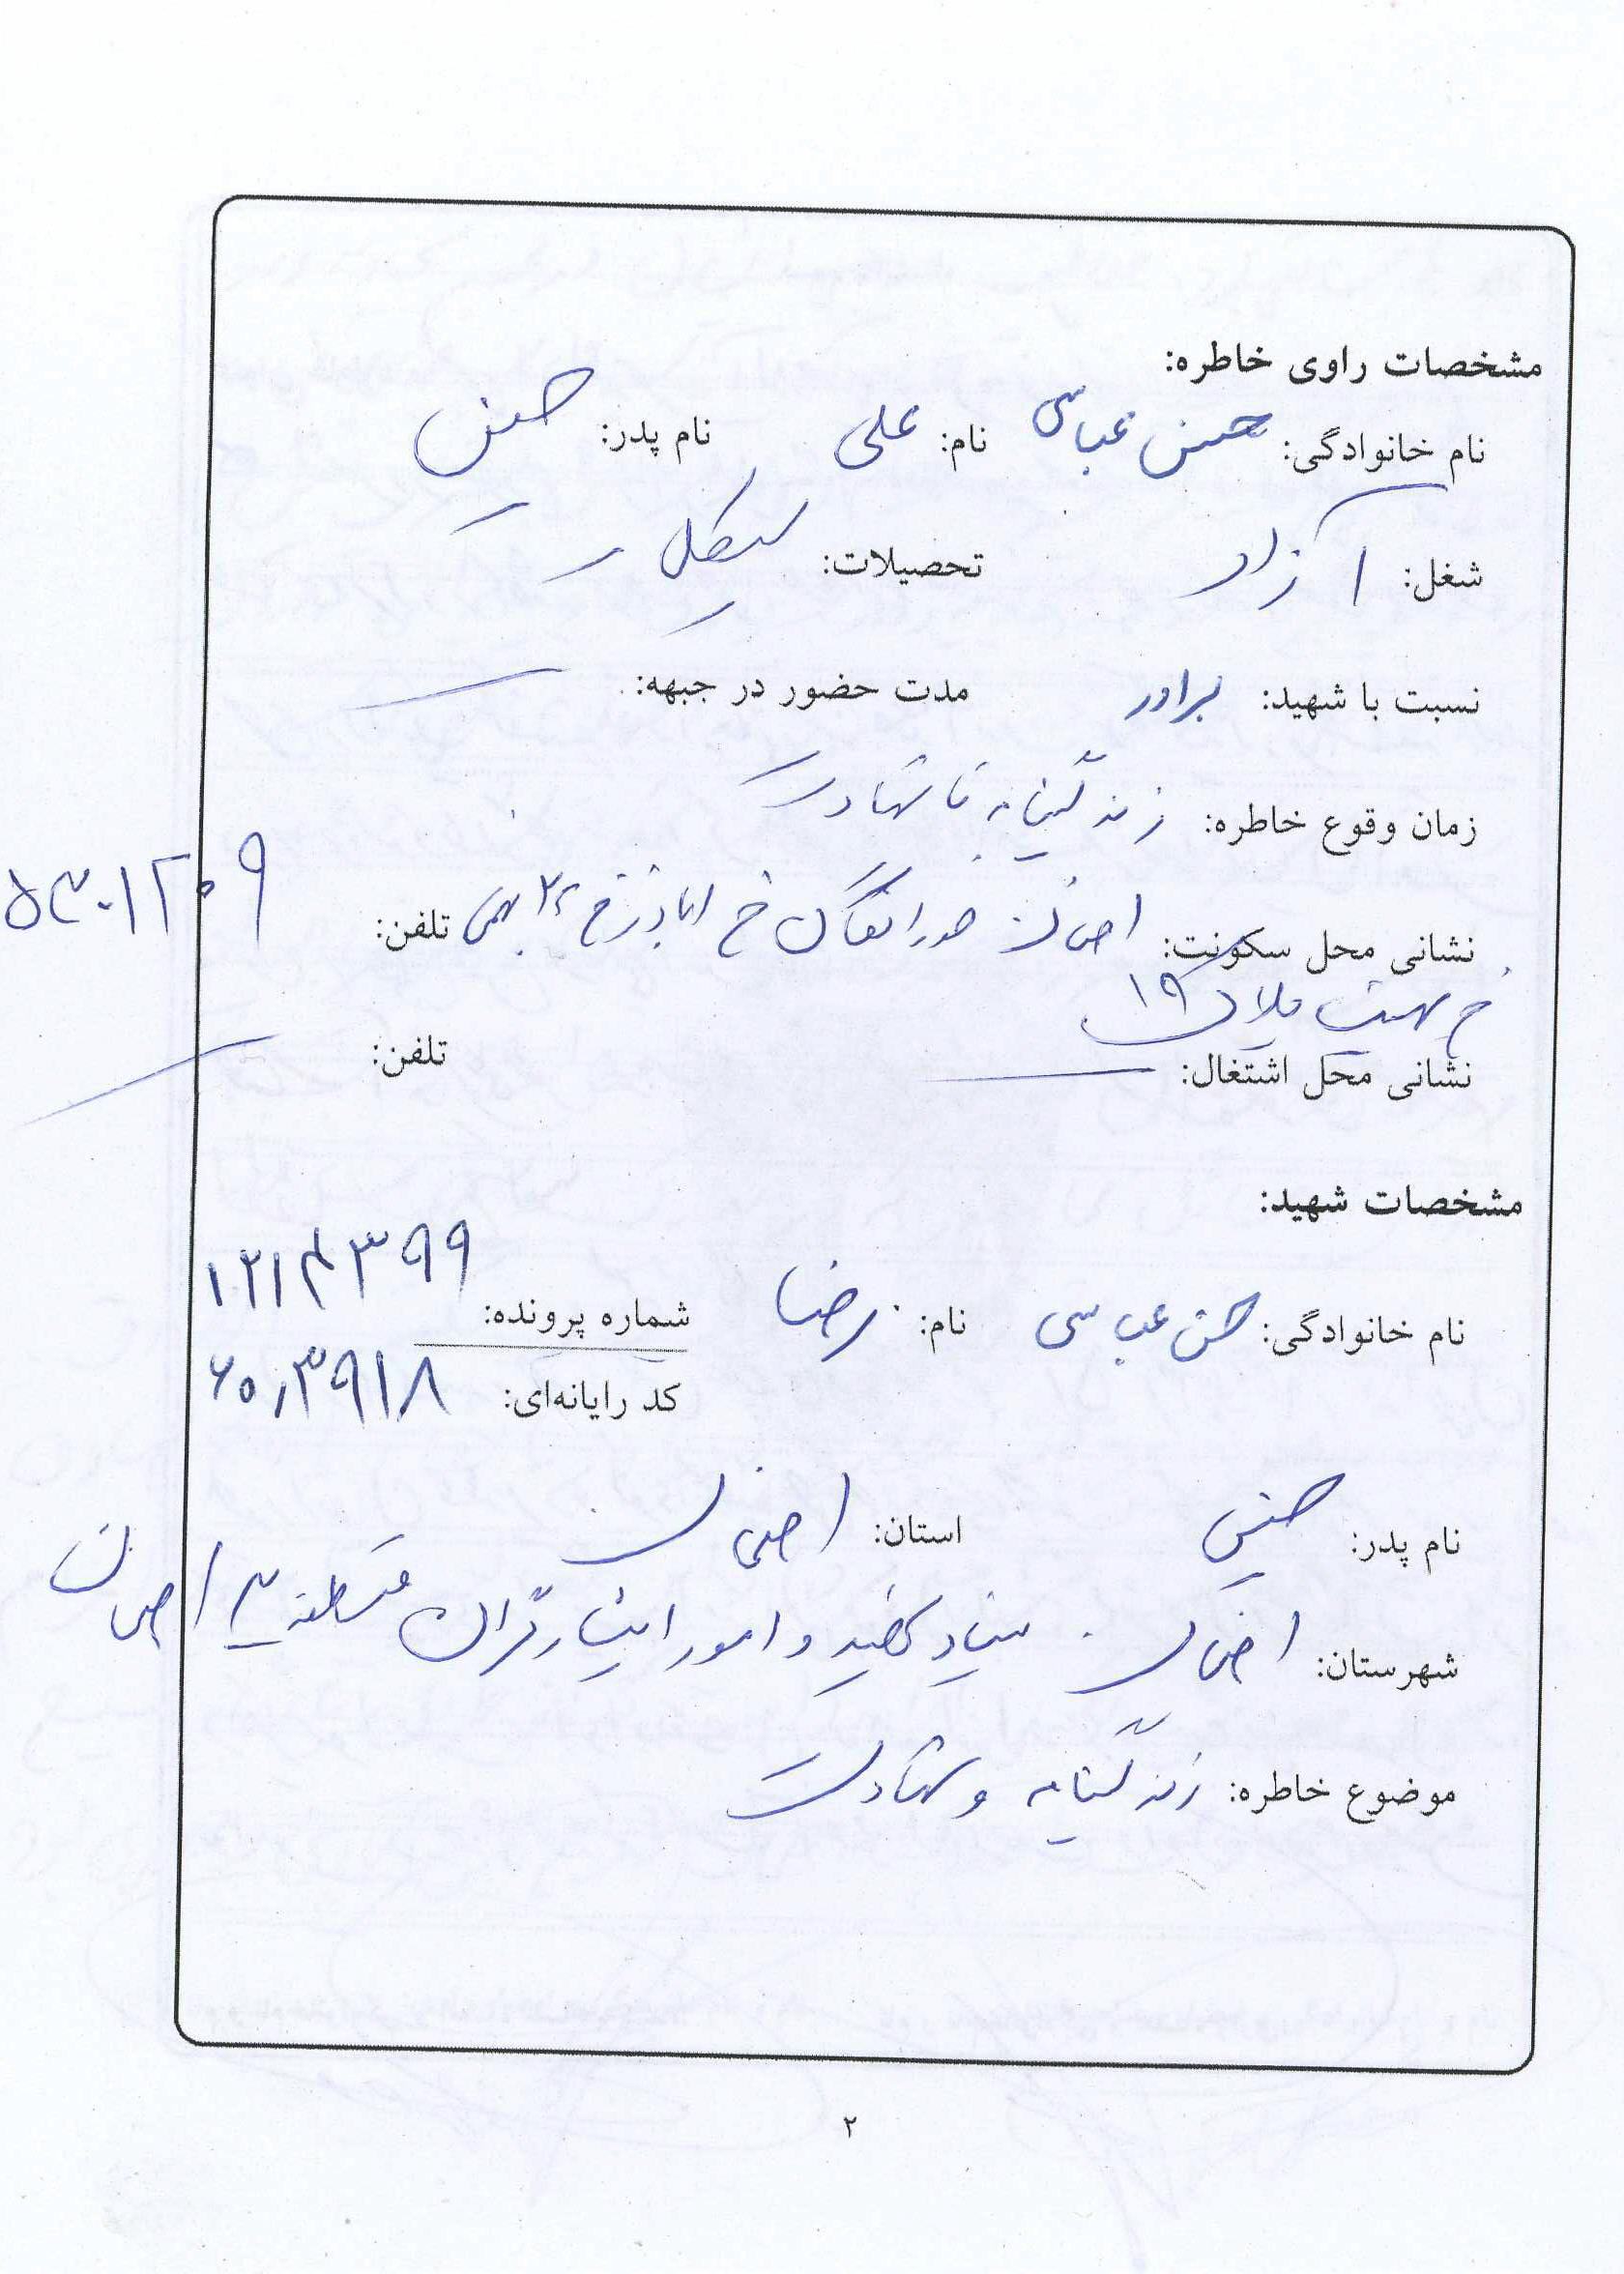 مشخصات راوی خاطره:
نام خانوادگی: حسن عباسی نام: علی نام پدر: حسین
شغل: آزاد تحصیلات: سیکل
نسبت با شهید: برادر مدت حضور در جبهه:
زمان وقوع خاطره: زندگینامه تا شهادت
نشانی محل سکونت: اصفهان خ اباذر خ ۲۲ بهمن تلفن: ۵۳۰۱۲۰۹
خ بهشت پلاک ۱۹
نشانی محل اشتغال: تلفن:
مشخصات شهید:
نام خانوادگی: حسن عباسی نام: رضا شماره پرونده: ۱۲۱۴۳۹۹
کد رایانه‌ای: ۶۵۰۳۹۱۸
نام پدر: حسین استان: اصفهان
شهرستان: اصفهان بنیاد شهید و امور ایثارگران منطقه اصفهان
موضوع خاطره: زندگینامه و شهادت
۲